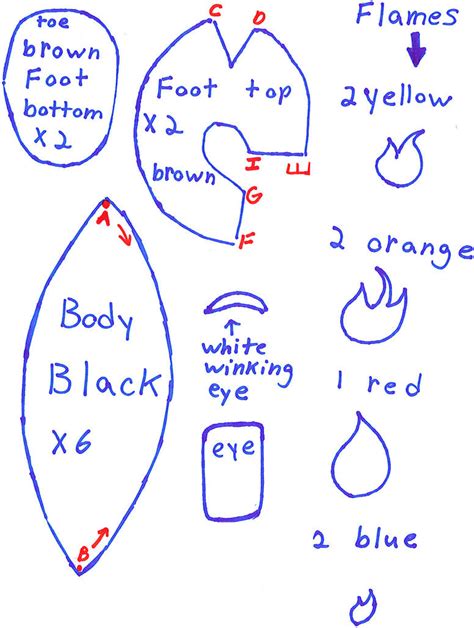 toe
brown
Foot
bottom
X 2
C D
Foot top
X 2
brown
I E
G
F
Flames
2 yellow
2 orange
1 red
2 blue
A
Body
Black
X 6
B
white
winking
eye
eye